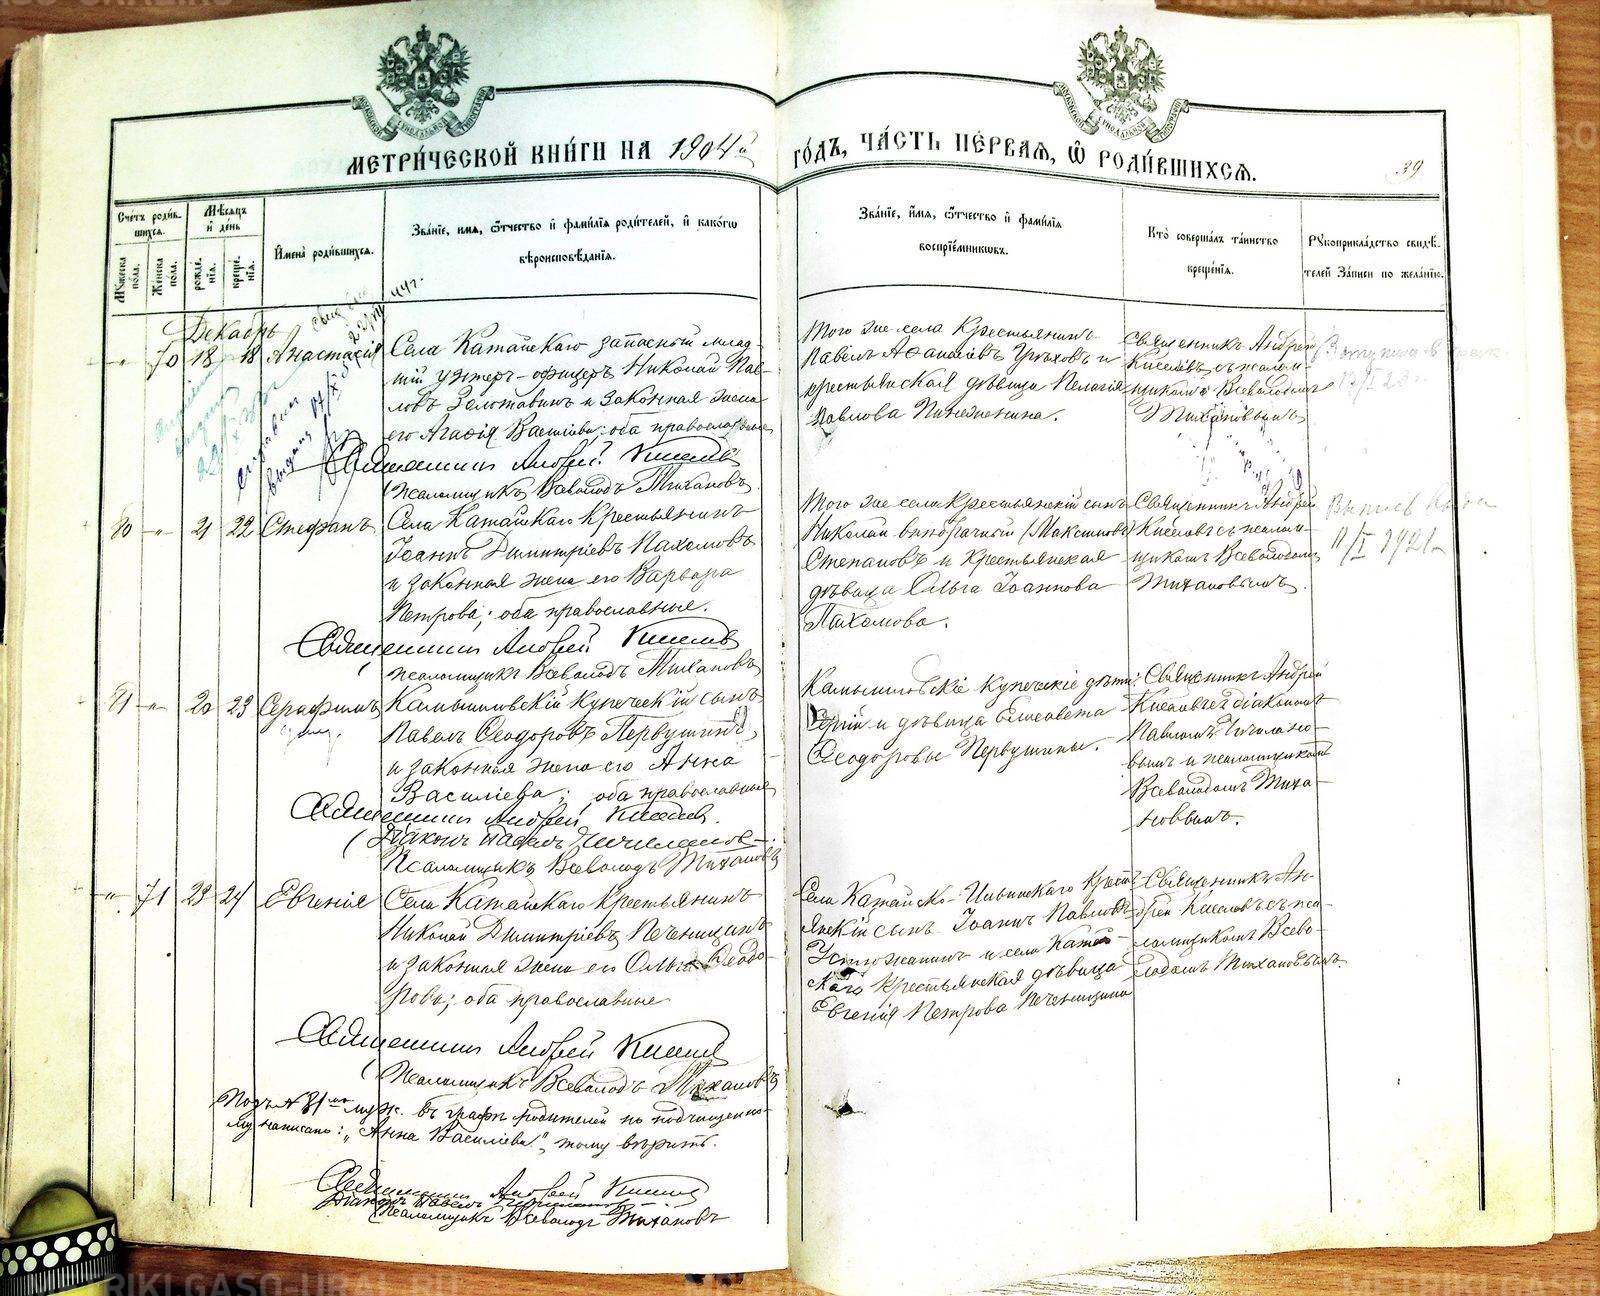 МЕТРИ́ЧЕСКОЙ КНИ́ГИ НА 1904й ГО́ДЪ, ЧА́СТЬ ПЕ́РВАЯ, Ѡ РОДИ́ВШИХСЯ.
39
Сче́тъ роди́вшихся.
Му́жеска по́ла.
Же́нска по́ла.
Мѣ́сяцъ и де́нь
рожде́нїя.
креще́нїя.
Имена́ роди́вшихся.
Зва́нїе, имя, ѻ́тчество и фами́лїя роди́телей, и како́гѡ
вѣроисповѣ́данїя.
Зва́нїе, и́мя, ѻ́тчество и фами́лїя
воспрїе́мниковъ.
Кто̀ соверша́лъ та́инство
креще́нїя.
Рꙋкоприкла́дство свидѣ́-
телей за́писи по жела́нїю.
Декабрь
" 70 18 18 Анастасія
Села Катайскаго запасный млад-
шій унтеръ-офицеръ Николай Пав-
ловъ Золотавинъ и законная жена
его Агафія Васильева; оба православные
Священникъ Андрей Киселевъ
Псаломщикъ Всеволодъ Тихановъ
Того же села Крестьянинъ
Павелъ Аѳанасіевъ и
крестьянская дѣвица Пелагія
Павлова
Священникъ Андрей
Киселевъ съ псалом-
щикомъ Всеволодомъ
Тихановымъ
80 " 21 22 Стефанъ
Села Катайскаго Крестьянинъ
Іоаннъ Димитріевъ Пахомовъ
и законная жена его Варвара
Петрова; оба православные.
Священникъ Андрей Киселевъ
Псаломщикъ Всеволодъ Тихановъ
Того же села Крестьянскій сынъ
Николай внѣбрачный (Максимовъ)
Степановъ и крестьянская
дѣвица Ольга Іоаннова
Пахомова.
Священникъ Андрей
Киселевъ съ псалом-
щикомъ Всеволодомъ
Тихановымъ.
Выпись выдана
11/I 1921
81 " 20 23 Серафимъ
Камышловскій Купеческій сынъ
Павелъ Ѳеодоровъ Первушинъ
и законная жена его Анна
Василіева; оба православные
Священникъ Андрей Киселевъ.
Діаконъ Павелъ
Псаломщикъ Всеволодъ Тихановъ
Камышловскіе купеческіе дѣти:
Сергій и дѣвица Елисавета
Ѳеодоровы Первушины.
Священникъ Андрей
Киселевъ съ діакономъ
Павломъ
вымъ и псаломщикомъ
Всеволодомъ Тиха-
новымъ.
" 71 23 24 Евгенія
Села Катайскаго Крестьянинъ
Николай Димитріевъ Печенинъ
и законная жена его Ольга Ѳеодо-
рова; оба православные
Священникъ Андрей Киселевъ
Псаломщикъ Всеволодъ Тихановъ
Села Катайско-Ильинскаго Кресть-
янскій сынъ Іоаннъ Павловъ
Устюжанинъ и села Катай-
скаго Крестьянская дѣвица
Евгенія Петрова
Священникъ Ан-
дрей Киселевъ съ пса-
ломщикомъ Всево-
лодомъ Тихановымъ.
Подъ № 81мъ муж. въ графѣ родителей по подчищенно-
му написано: „Анна Василіева", тому вѣрить.
Священникъ Андрей Киселевъ
Діаконъ Павелъ
Псаломщикъ Всеволодъ Тихановъ